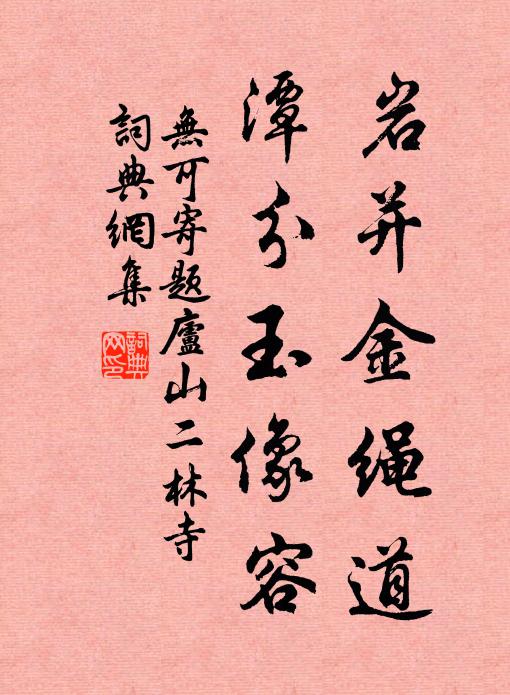 岩并金绳道
潭分玉像容
無可寄题廬山二林寺
詞典網集
詞典
网印